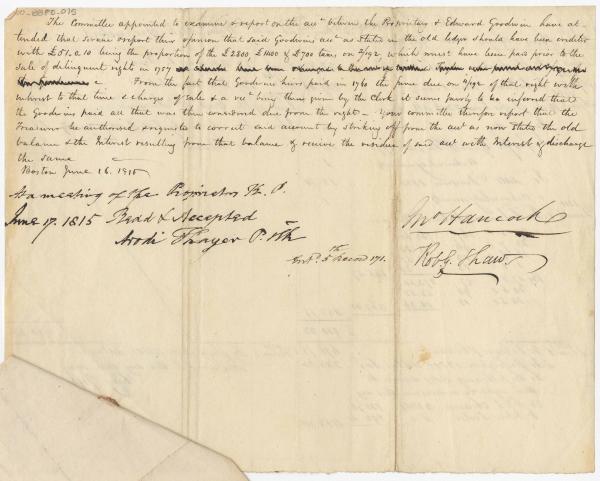 The Committee appointed to examine & report on the acct between the Proprietors & Edward Goodwin have at-
tended that service & report their opinion that said Goodwins acct as stated in the old ledger should have been credited
with £51.0.10 being the proportion of the £2800, £1100 & £700 taxes on 2/192 which must have been paid prior to the
sale of delinquent right in 1757
From the fact that Goodwins heirs paid in 1760 the sums due on 2/192 of that right with
interest to that time & charges of sale & a rect being then given by the Clerk it seems fairly to be inferred that
the Goodwins paid all that was then considered due from the right - Your committee therefore report that the
Treasurer be authorised & requested to correct said account by striking off from the acct as now stated the old
balance & the Interest resulting from that balance & receive the residue of said acct with Interest & discharge
the same
Boston June 16. 1815
At a meeting of the Proprietors K. P.
June 17. 1815 Read & Accepted
Arodi Thayer P. Clk
Entd. 5th Record 171.
Hancock
Robt G. Shaw